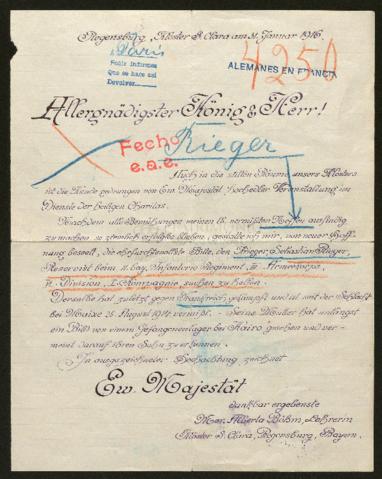 Regensburg, Kloster St. Clara am 31. Januar 1916
París
Pedir informes
Que se hace así
Devolver
4250
ALEMANES EN FRANCIA
Allergnädigster König & Herr!
Fecho
e.a.e.
Rieger
Auch in die stillen Räume unsers Klosters
ist die Kunde gedrungen von Ew. Majestät hochedler Veranstaltung im
Dienste der heiligen Charitas.
Nachdem alle Bemühungen meinen lb. vermißten Neffen ausfindig
zu machen so ziemlich erfolglos blieben, gestatte ich mir, von neuer Hoff-
nung beseelt, die ehrfurchtsvollste Bitte, den Krieger Sebastian Rieger,
Reservist beim 11. bay. Infanterie Regiment,
Division, Compagnie suchen zu lassen.
Derselbe hat zuletzt gegen Frankreich gekämpft und ist seit der Schlacht
bei Maixe 25. August 1914 vermißt. Seine Mutter hat unlängst
ein Bild von einem Gefangenenlager bei Kairo gesehen und ver-
meint darauf ihren Sohn zu erkennen.
In ausgezeichneter Hochachtung zeichnet
Ew. Majestät
dankbar ergebenste
M. Alberta Böhm, Lehrerin
Kloster St. Clara, Regensburg, Bayern.